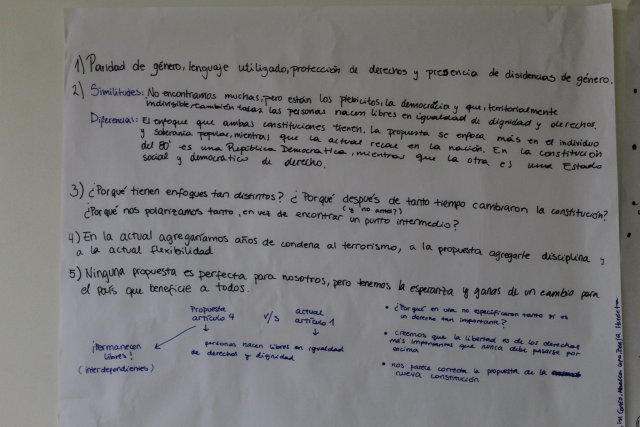 1) Paridad de género, lenguaje utilizado, protección de derechos y presencia de disidencias de género.
2) Similitudes: No encontramos muchas, pero están los plebicitos, la democracia y que, territorialmente
indivisible, también todas las personas nacen libres en igualdad de dignidad y derechos.
Diferencias: El enfoque que ambas constituciones tienen, la propuesta se enfoca más en el individuo
y soberania popular, mientras que la actual recae en la nación. En la constitución
del 80' es una República Democratica, mientras que la otra es una Estado
social y democrático de derecho.
3) ¿Porqué tienen enfoques tan distintos? ¿Porqué después de tanto tiempo cambiaron la constitución?
(¿y no antes?)
¿Porqué nos polarizamos tanto, en vez de encontrar un punto intermedio?
4) En la actual agregaríamos años de condena al terrorismo, a la propuesta agregarle disciplina y
a la actual flexibilidad
5) Ninguna propuesta es perfecta para nosotros, pero tenemos la esperanza y ganas de un cambio para
el país que beneficie a todos.
Propuesta artículo 4 v/s actual artículo 1
¡Permanecen libres!
(interdependientes)
personas nacen libres en igualdad
de derechos y dignidad
• ¿Porqué en una no especificaron tanto si es
un derecho tan importante?
• creemos que la libertad es de los derechos
más importantes que nunca debe pasarse por
encima
• nos parece correcta la propuesta de la
nueva constitución